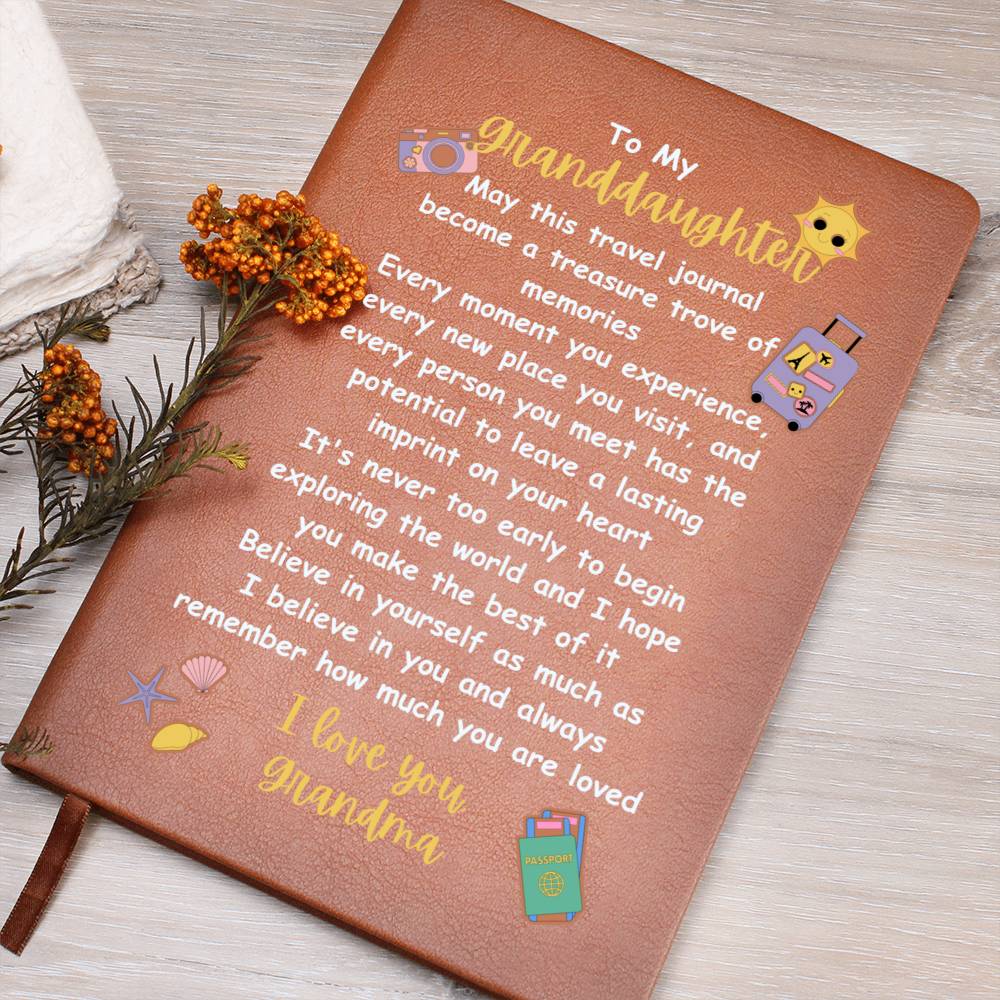 To My
granddaughter
May this travel journal
become a treasure trove of
memories
Every moment you experience,
every new place you visit, and
every person you meet has the
potential to leave a lasting
imprint on your heart
It's never too early to begin
exploring the world and I hope
you make the best of it
Believe in yourself as much as
I believe in you and always
remember how much you are loved
I love you
grandma
PASSPORT